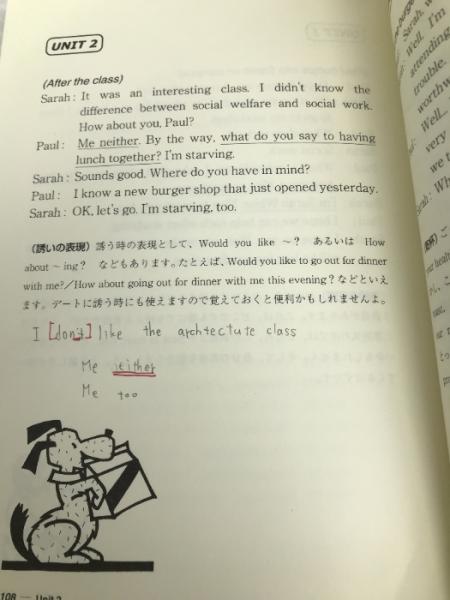 UNIT 2
(After the class)
Sarah : It was an interesting class. I didn't know the
difference between social welfare and social work.
How about you, Paul?
Paul : Me neither. By the way, what do you say to having
lunch together? I'm starving.
Sarah : Sounds good. Where do you have in mind?
Paul : I know a new burger shop that just opened yesterday.
Sarah : OK, let's go. I'm starving, too.
(誘いの表現) 誘う時の表現として、Would you like ～? あるいは How
about ～ ing? などもあります。たとえば、Would you like to go out for dinner
with me?/How about going out for dinner with me this evening? などといえ
ます。デートに誘う時にも使えますので覚えておくと便利かもしれませんよ。
I [don't] like the archtectute class
Me
Me too
108 — Unit 2
Sarah, w
Well, I'm
attending
trouble.
worthw
Well...
very
we t
Sarah : Wh